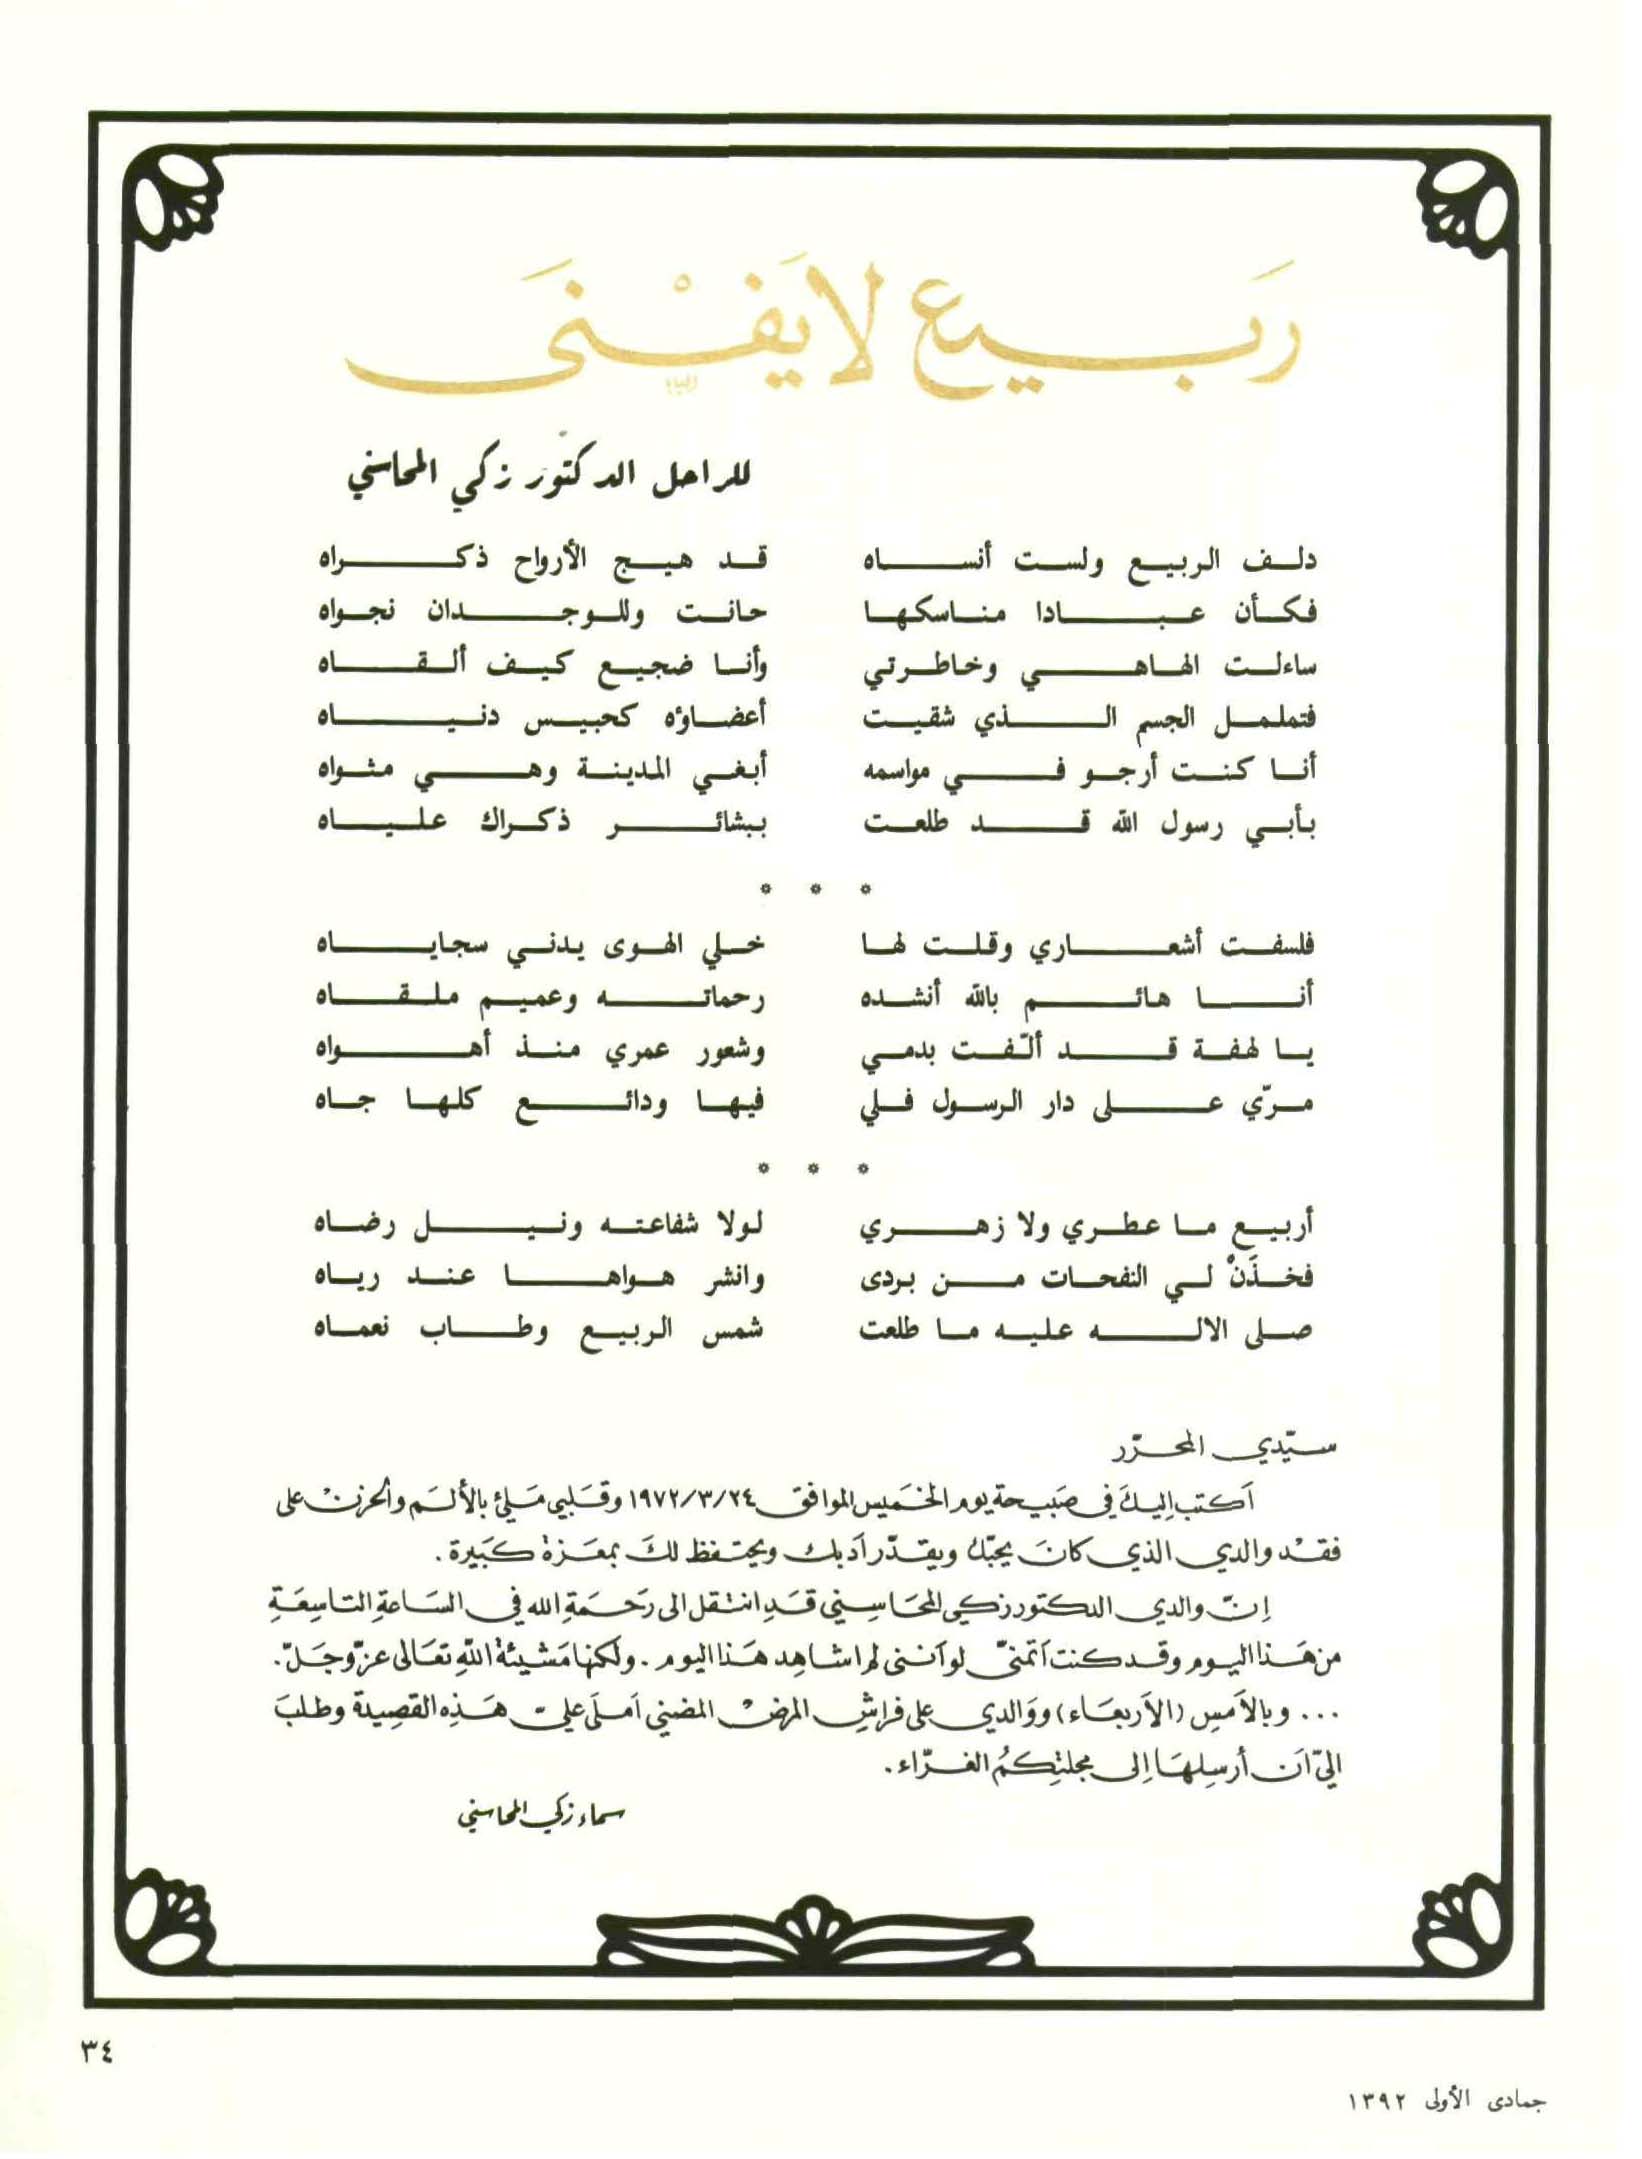 رَبيع لا يَفْنَى
للراحل الدكتور زكي المحاسني
دلف الربيع ولست أنساه قد هيج الأرواح ذكراه
فكأن عبادا مناسكها حانت وللوجدان نجواه
ساءلت الهاهي وخاطرتي وأنا ضجيع كيف ألقاه
فتململ الجسم الذي شقيت أعضاؤه كحبيس دنياه
أنا كنت أرجو في مواسمه أبغي المدينة وهي مثواه
بأبي رسول الله قد طلعت ببشائر ذكراك علياه
* * *
فلسفت أشعاري وقلت لها خلي الهوى يدني سجاياه
أنا هائم بالله أنشده رحماته وعميم ملقاه
يا لهفة قد ألّفت بدمي وشعور عمري منذ أهواه
مرّي على دار الرسول فلي فيها ودائع كلها جاه
* * *
أربيع ما عطري ولا زهري لولا شفاعته ونيل رضاه
فخذَنْ لي النفحات من بردى وانشر هواها عند رياه
صلى الاله عليه ما طلعت شمس الربيع وطاب نعماه
سيّدي المحرّر
أكتب إليك في صبيحة يوم الخميس الموافق ١٩٧٢/٣/٢٤ وقلبي مليئ بالألم والحزن على
فقد والدي الذي كان يحبّك ويقدّر أدبك ويحتفظ لك بمعزة كبيرة.
إنّ والدي الدكتور زكي المحاسني قد انتقل الى رحمة الله في الساعة التاسعة
من هذا اليوم وقد كنت أتمنّى لو أنني لم اشاهد هذا اليوم . ولكنها مشيئة الله تعالى عزّ وجلّ.
... وبالأمس (الأربعاء) ووالدي على فراش المرض المضني أملى عليّ هذه القصيدة وطلب
اليّ أن أرسلها إلى مجلتكم الغرّاء.
سماء زكي المحاسني
٣٤
جمادى الأولى ١٣٩٢